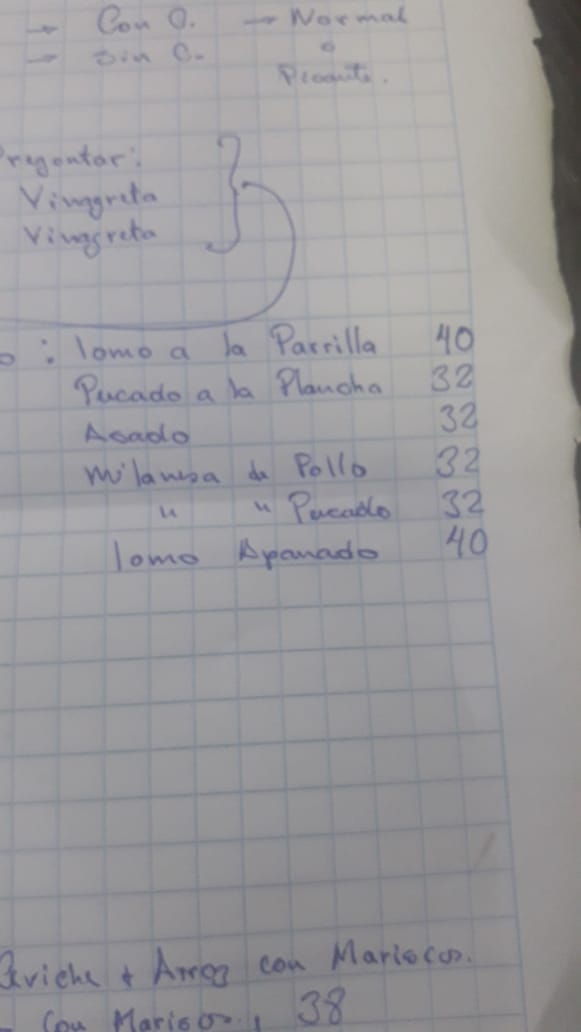 → Con O. → Normal
→ Sin C. o
Picante.
Preguntar:
Vinagreta
Vinagreta
o : lomo a la Parrilla 40
Pescado a la Plancha 32
Asado 32
Milanesa de Pollo 32
" " Pescado 32
lomo Apanado 40
Ceviche + Arroz con Mariscos.
Con Mariscos, 38